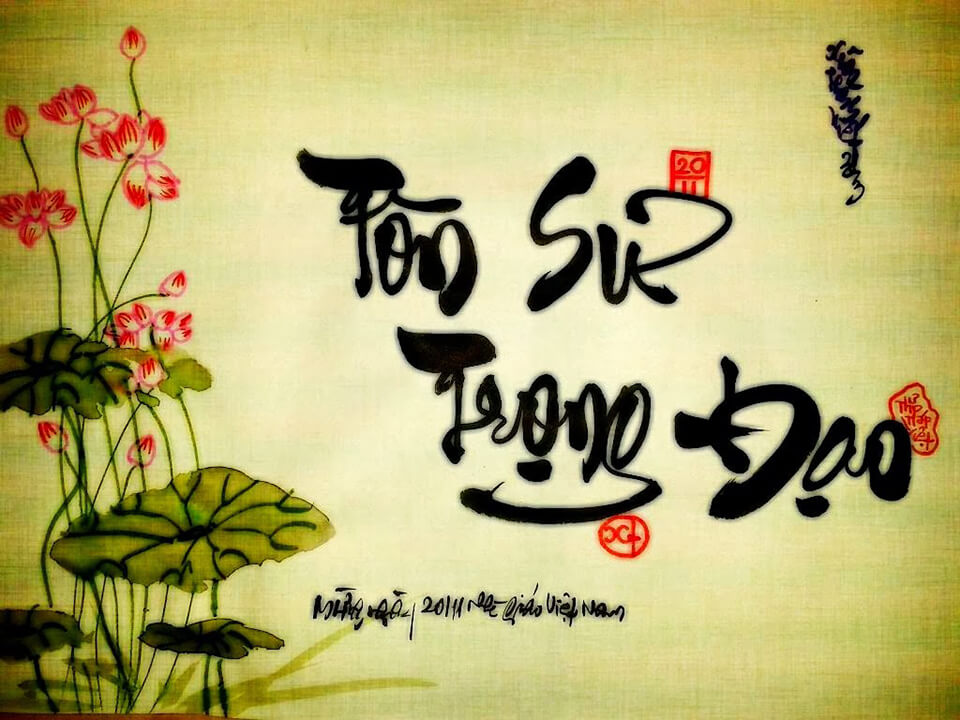 Tôn Sư
20
11
Trọng Đạo
Thư Pháp Việt
Mừng ngày 20/11 Nhà giáo Việt Nam